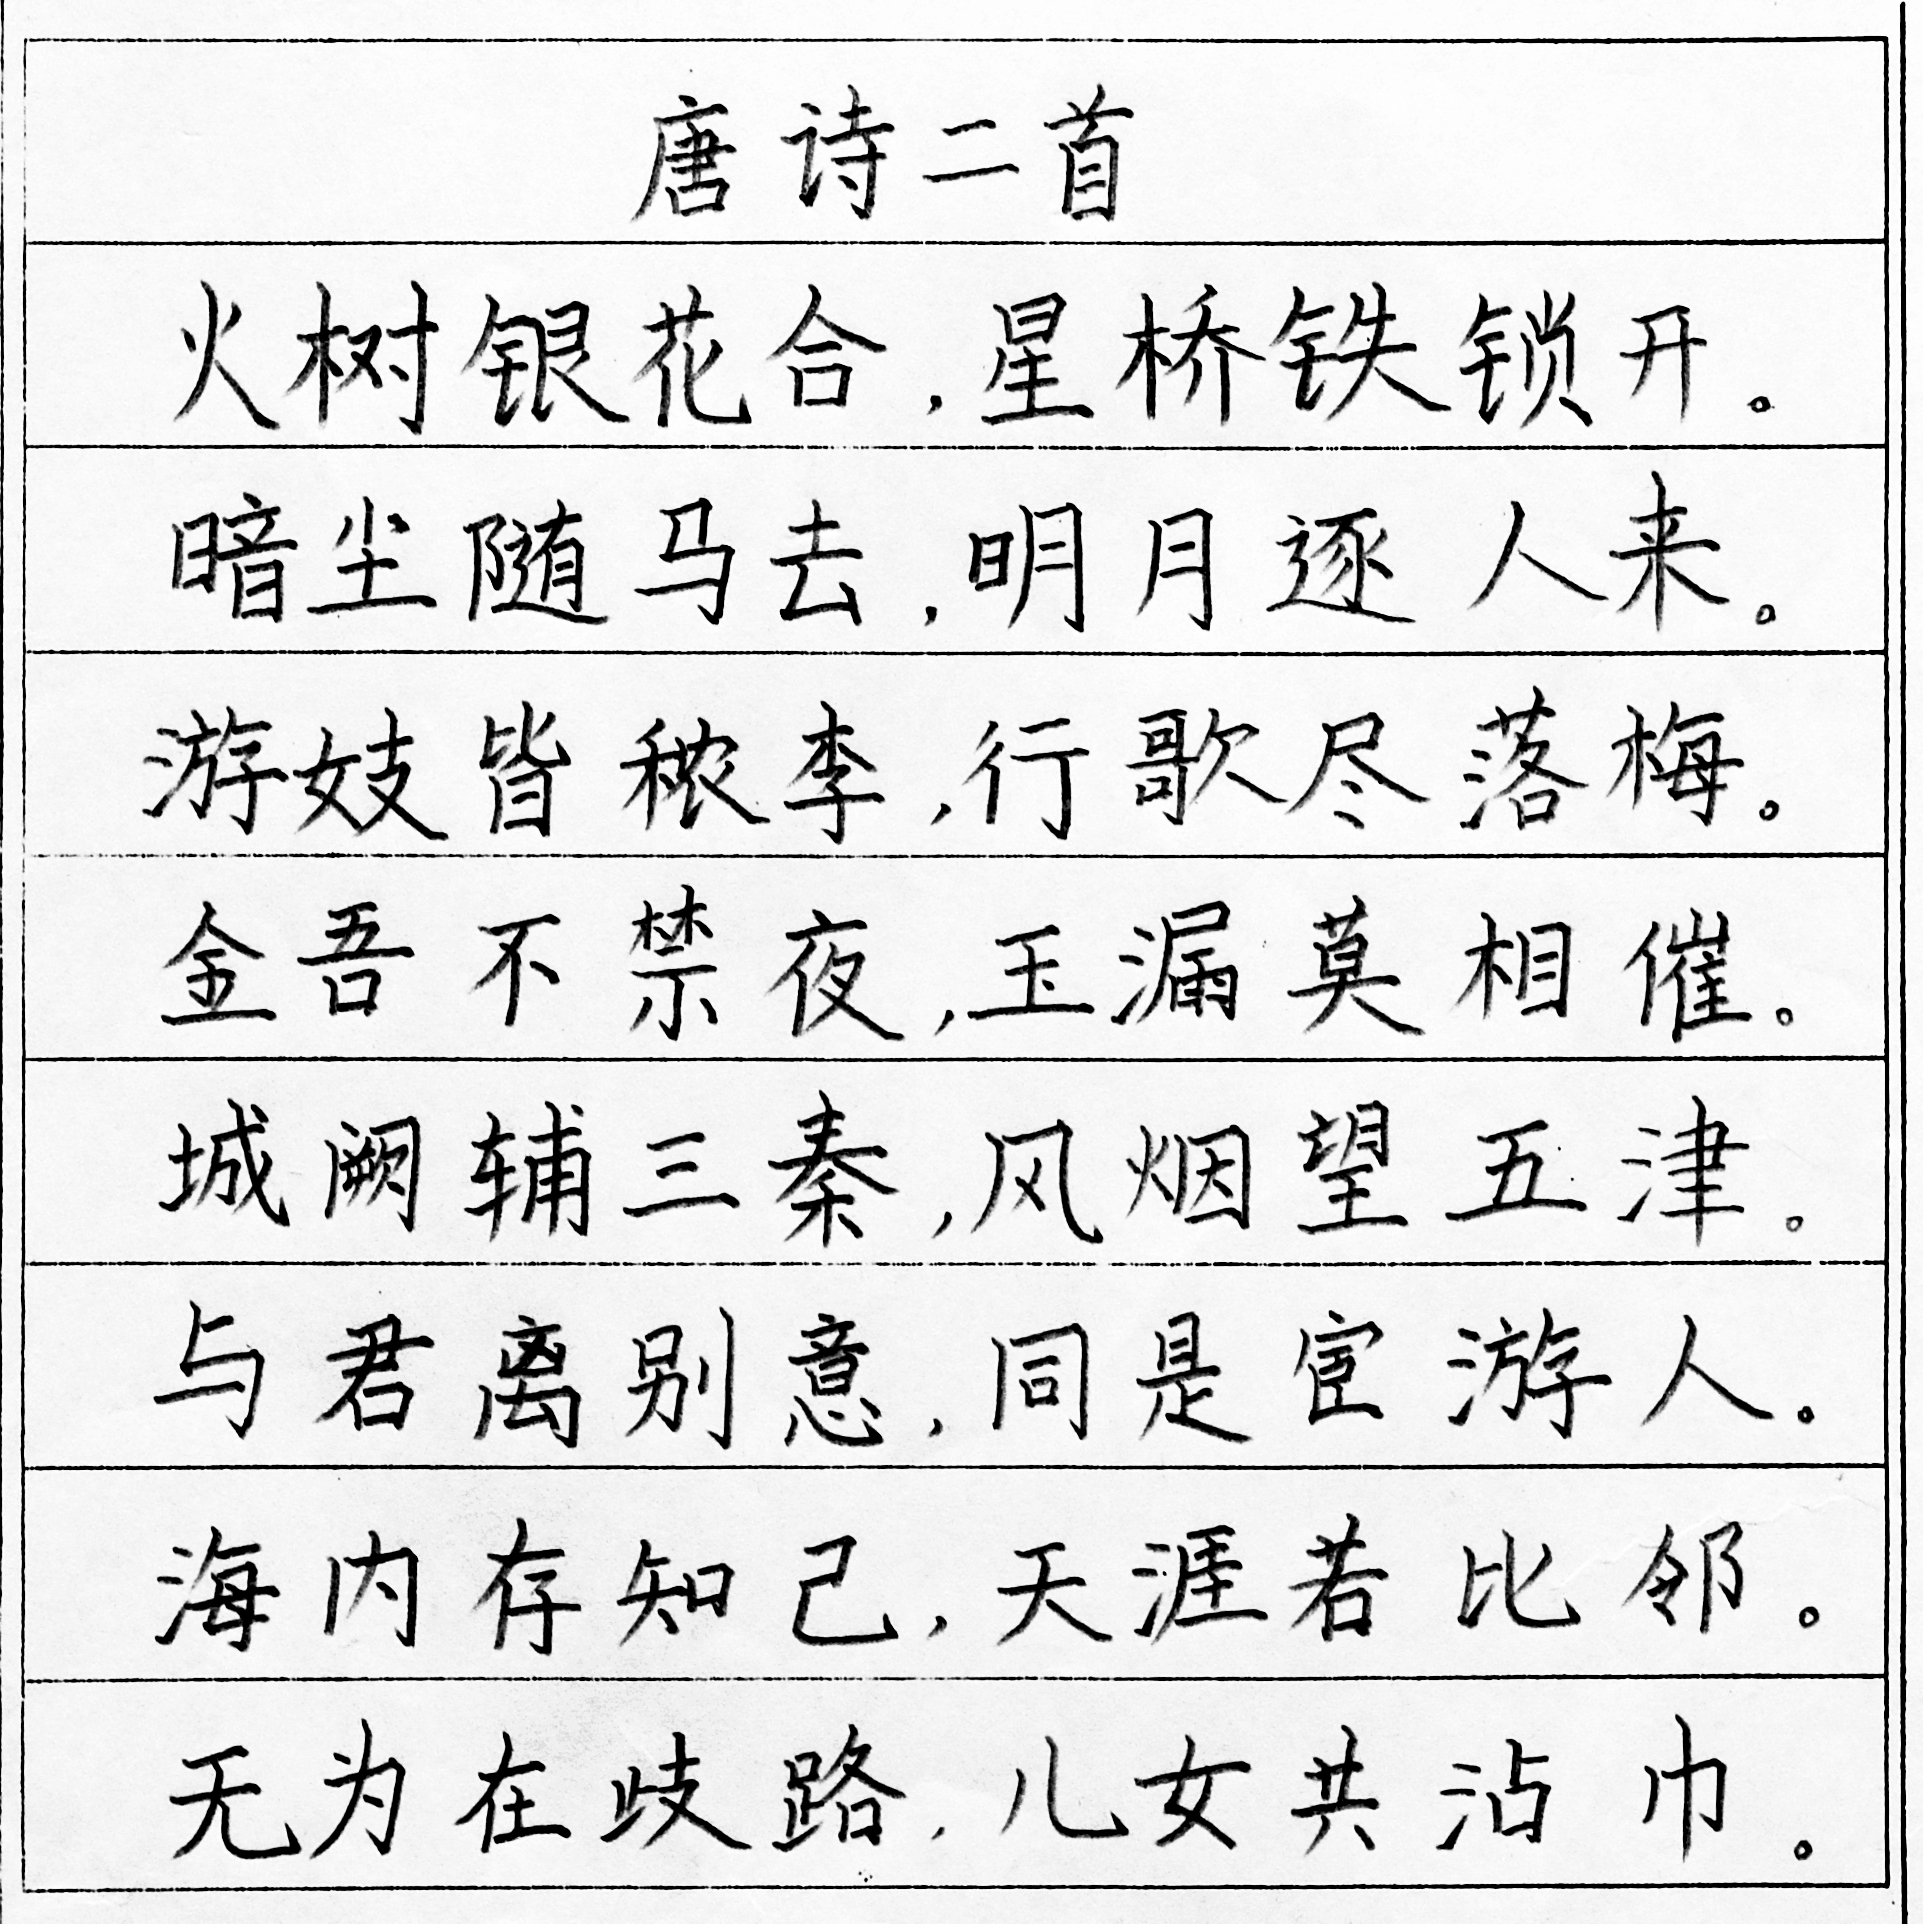 唐诗二首
火树银花合,星桥铁锁开。
暗尘随马去,明月逐人来。
游妓皆秾李,行歌尽落梅。
金吾不禁夜,玉漏莫相催。
城阙辅三秦,风烟望五津。
与君离别意,同是宦游人。
海内存知己,天涯若比邻。
无为在歧路,儿女共沾巾。